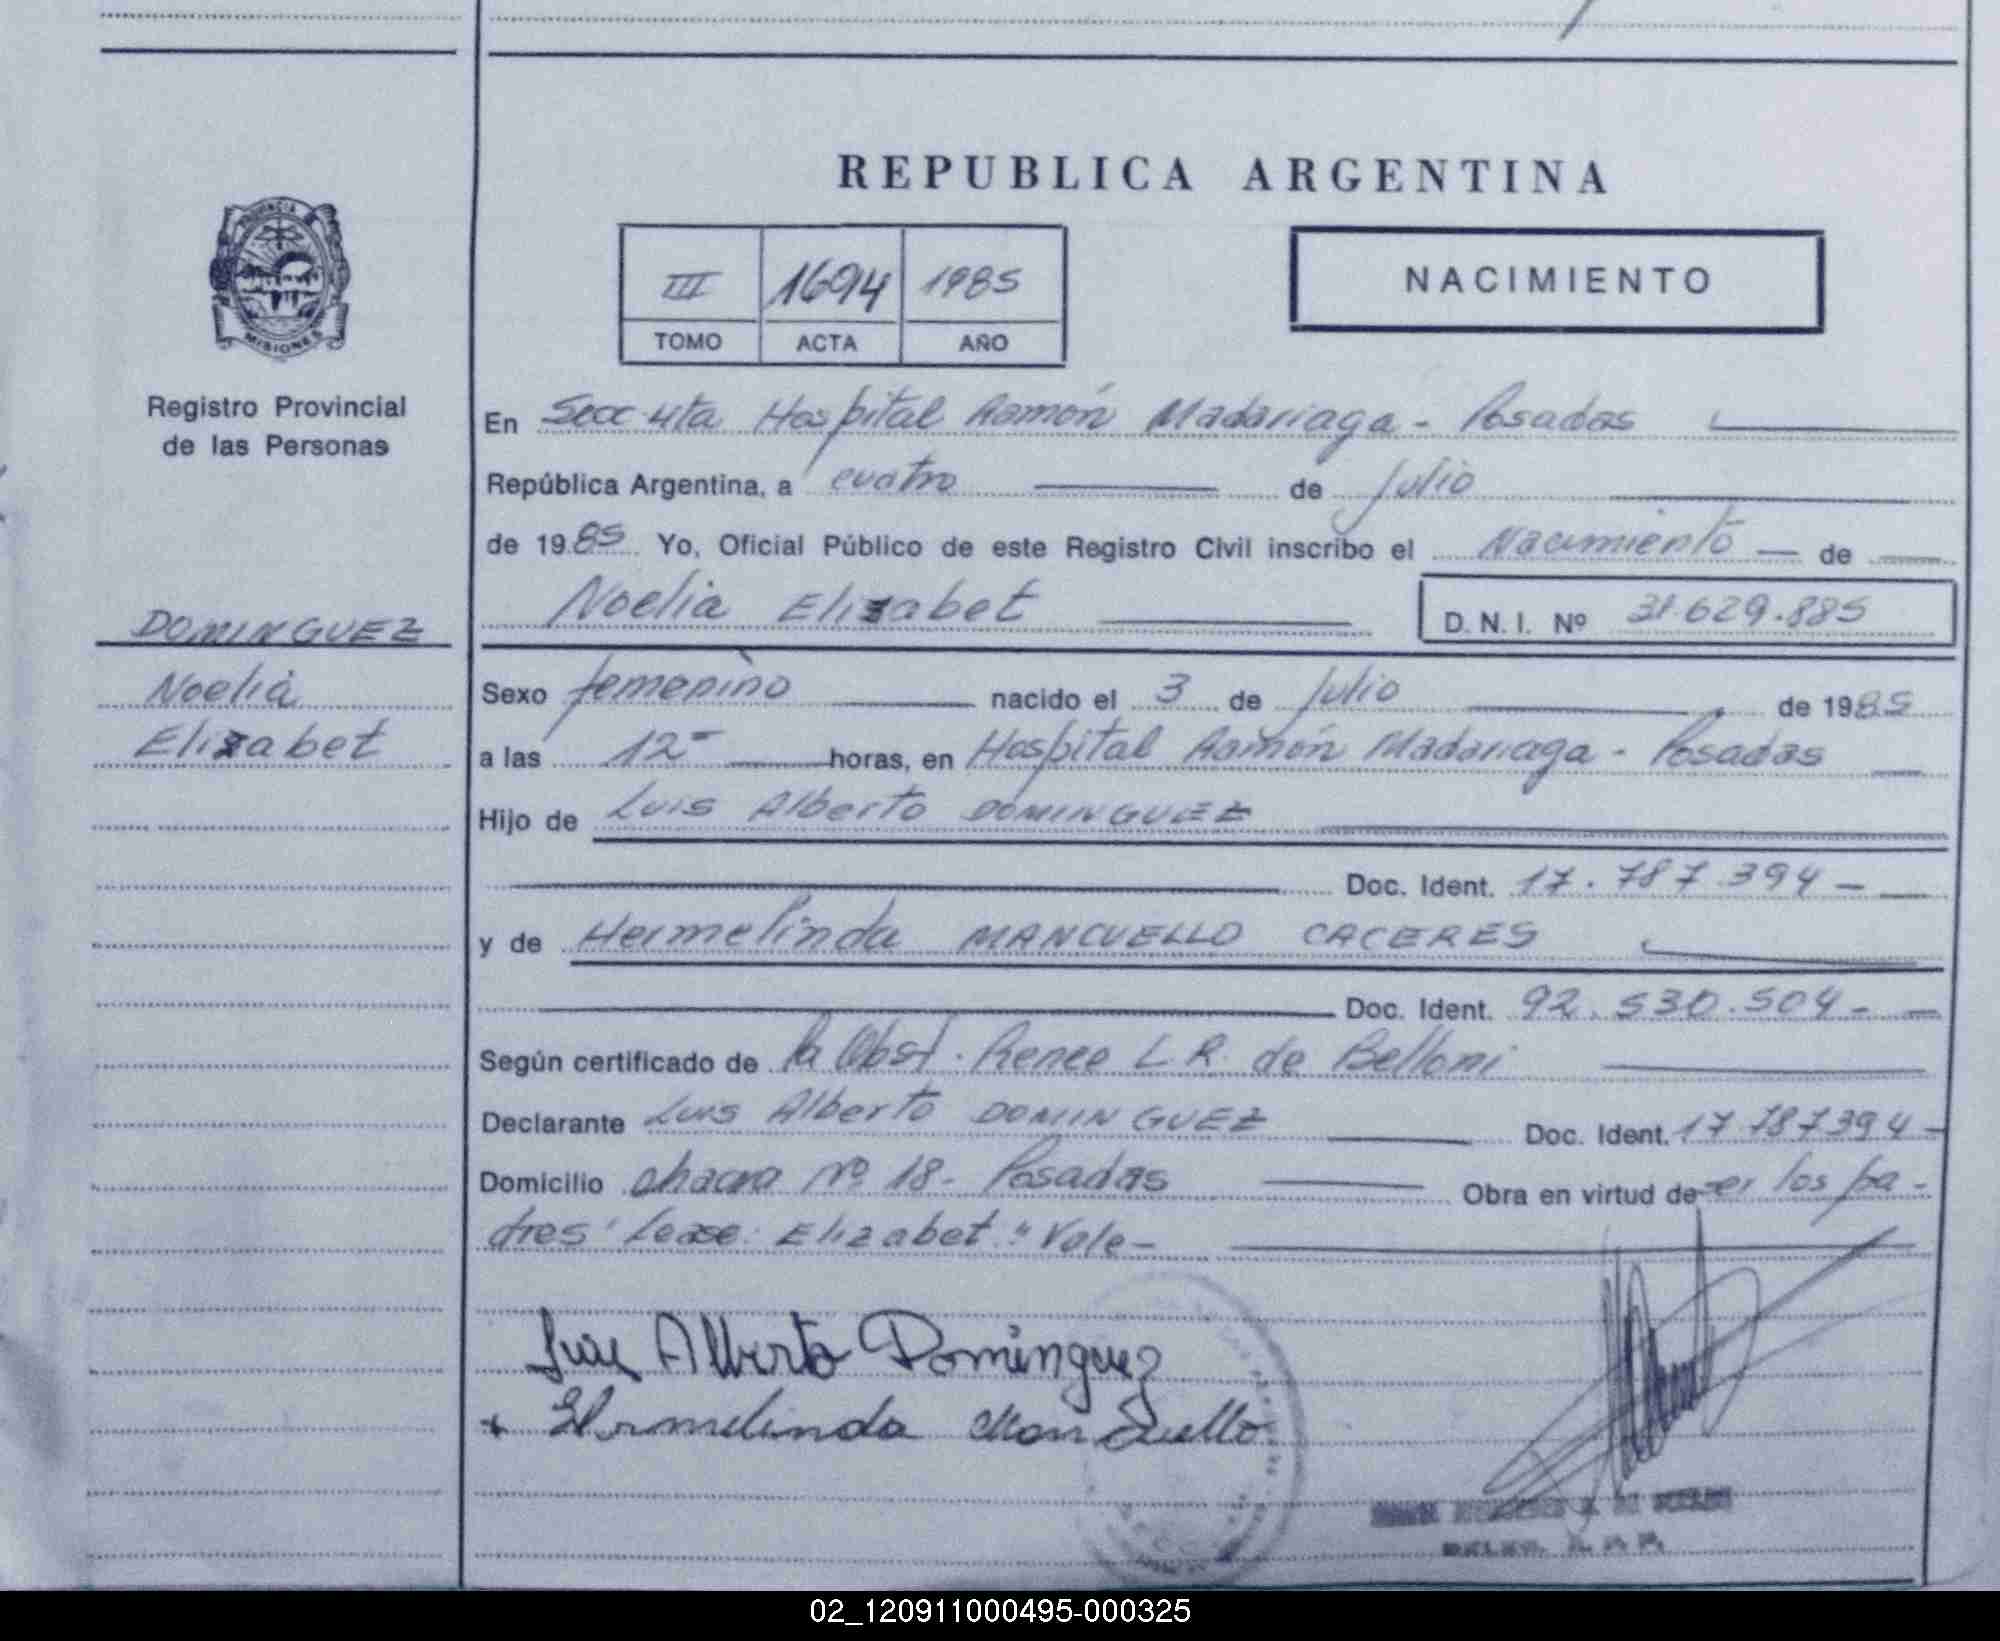 REPUBLICA ARGENTINA
PROVINCIA
MISIONES
Registro Provincial
de las Personas
III 1694 1985
TOMO ACTA AÑO
NACIMIENTO
En Secc 4ta Hospital Ramón Madariaga - Posadas
República Argentina, a cuatro de Julio
de 1985 Yo, Oficial Público de este Registro Civil inscribo el Nacimiento de
Noelia Elizabet
D. N. I. Nº 31.629.885
DOMINGUEZ
Noelia
Elizabet
Sexo femenino nacido el 3 de Julio de 1985
a las 12 horas, en Hospital Ramón Madariaga - Posadas
Hijo de Luis Alberto DOMINGUEZ
Doc. Ident. 17.787.394 -
y de Hermelinda MANCUELLO CACERES
Doc. Ident. 92.530.504 -
Según certificado de la Obst. Renee L R. de Belloni
Declarante Luis Alberto DOMINGUEZ Doc. Ident. 17 787394 -
Domicilio chacra Nº 18 - Posadas Obra en virtud de ser los pa-
dres "Lease: Elizabet" Vale -
Luis Alberto Dominguez
Hermelinda Mancuello
02_120911000495-000325